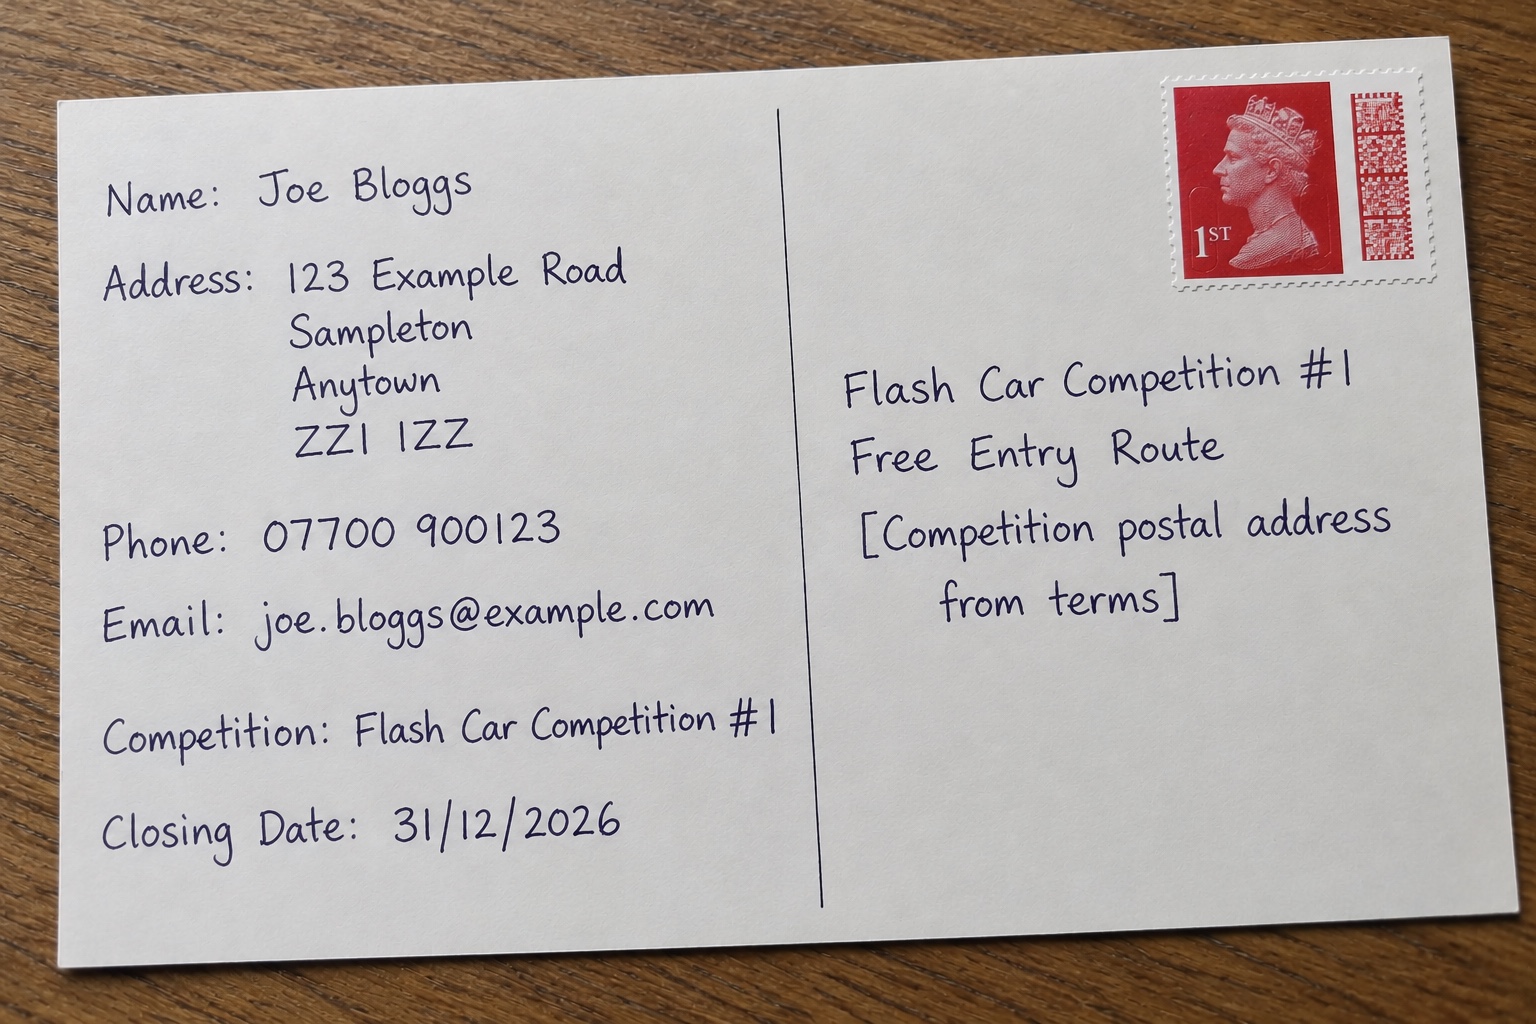 Name: Joe Bloggs
Address: 123 Example Road
Sampleton
Anytown
ZZ1 1ZZ
Phone: 07700 900123
Email: joe.bloggs@example.com
Competition: Flash Car Competition #1
Closing Date: 31/12/2026
1ST
Flash Car Competition #1
Free Entry Route
[Competition postal address
from terms]